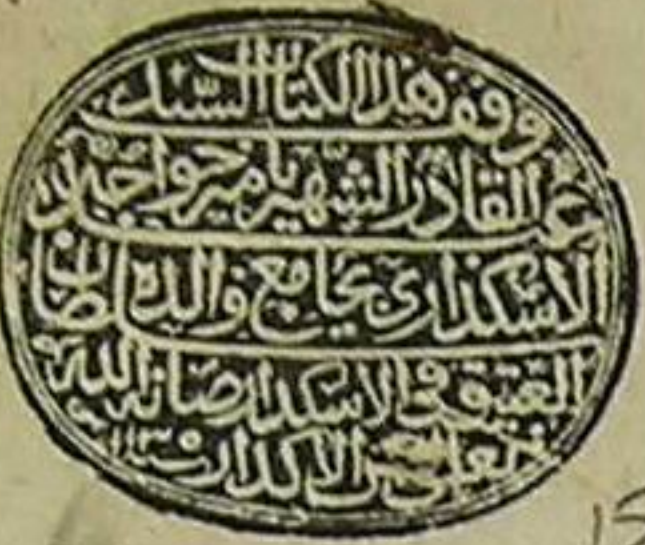 وقف هذا الكتاب السيد
عبد القادر الشهير بامير خواجه
الاسكداري بجامع والده سلطان
العتيق في الاسكدار صانه الله
تعالى عن الاكدار سنه
15